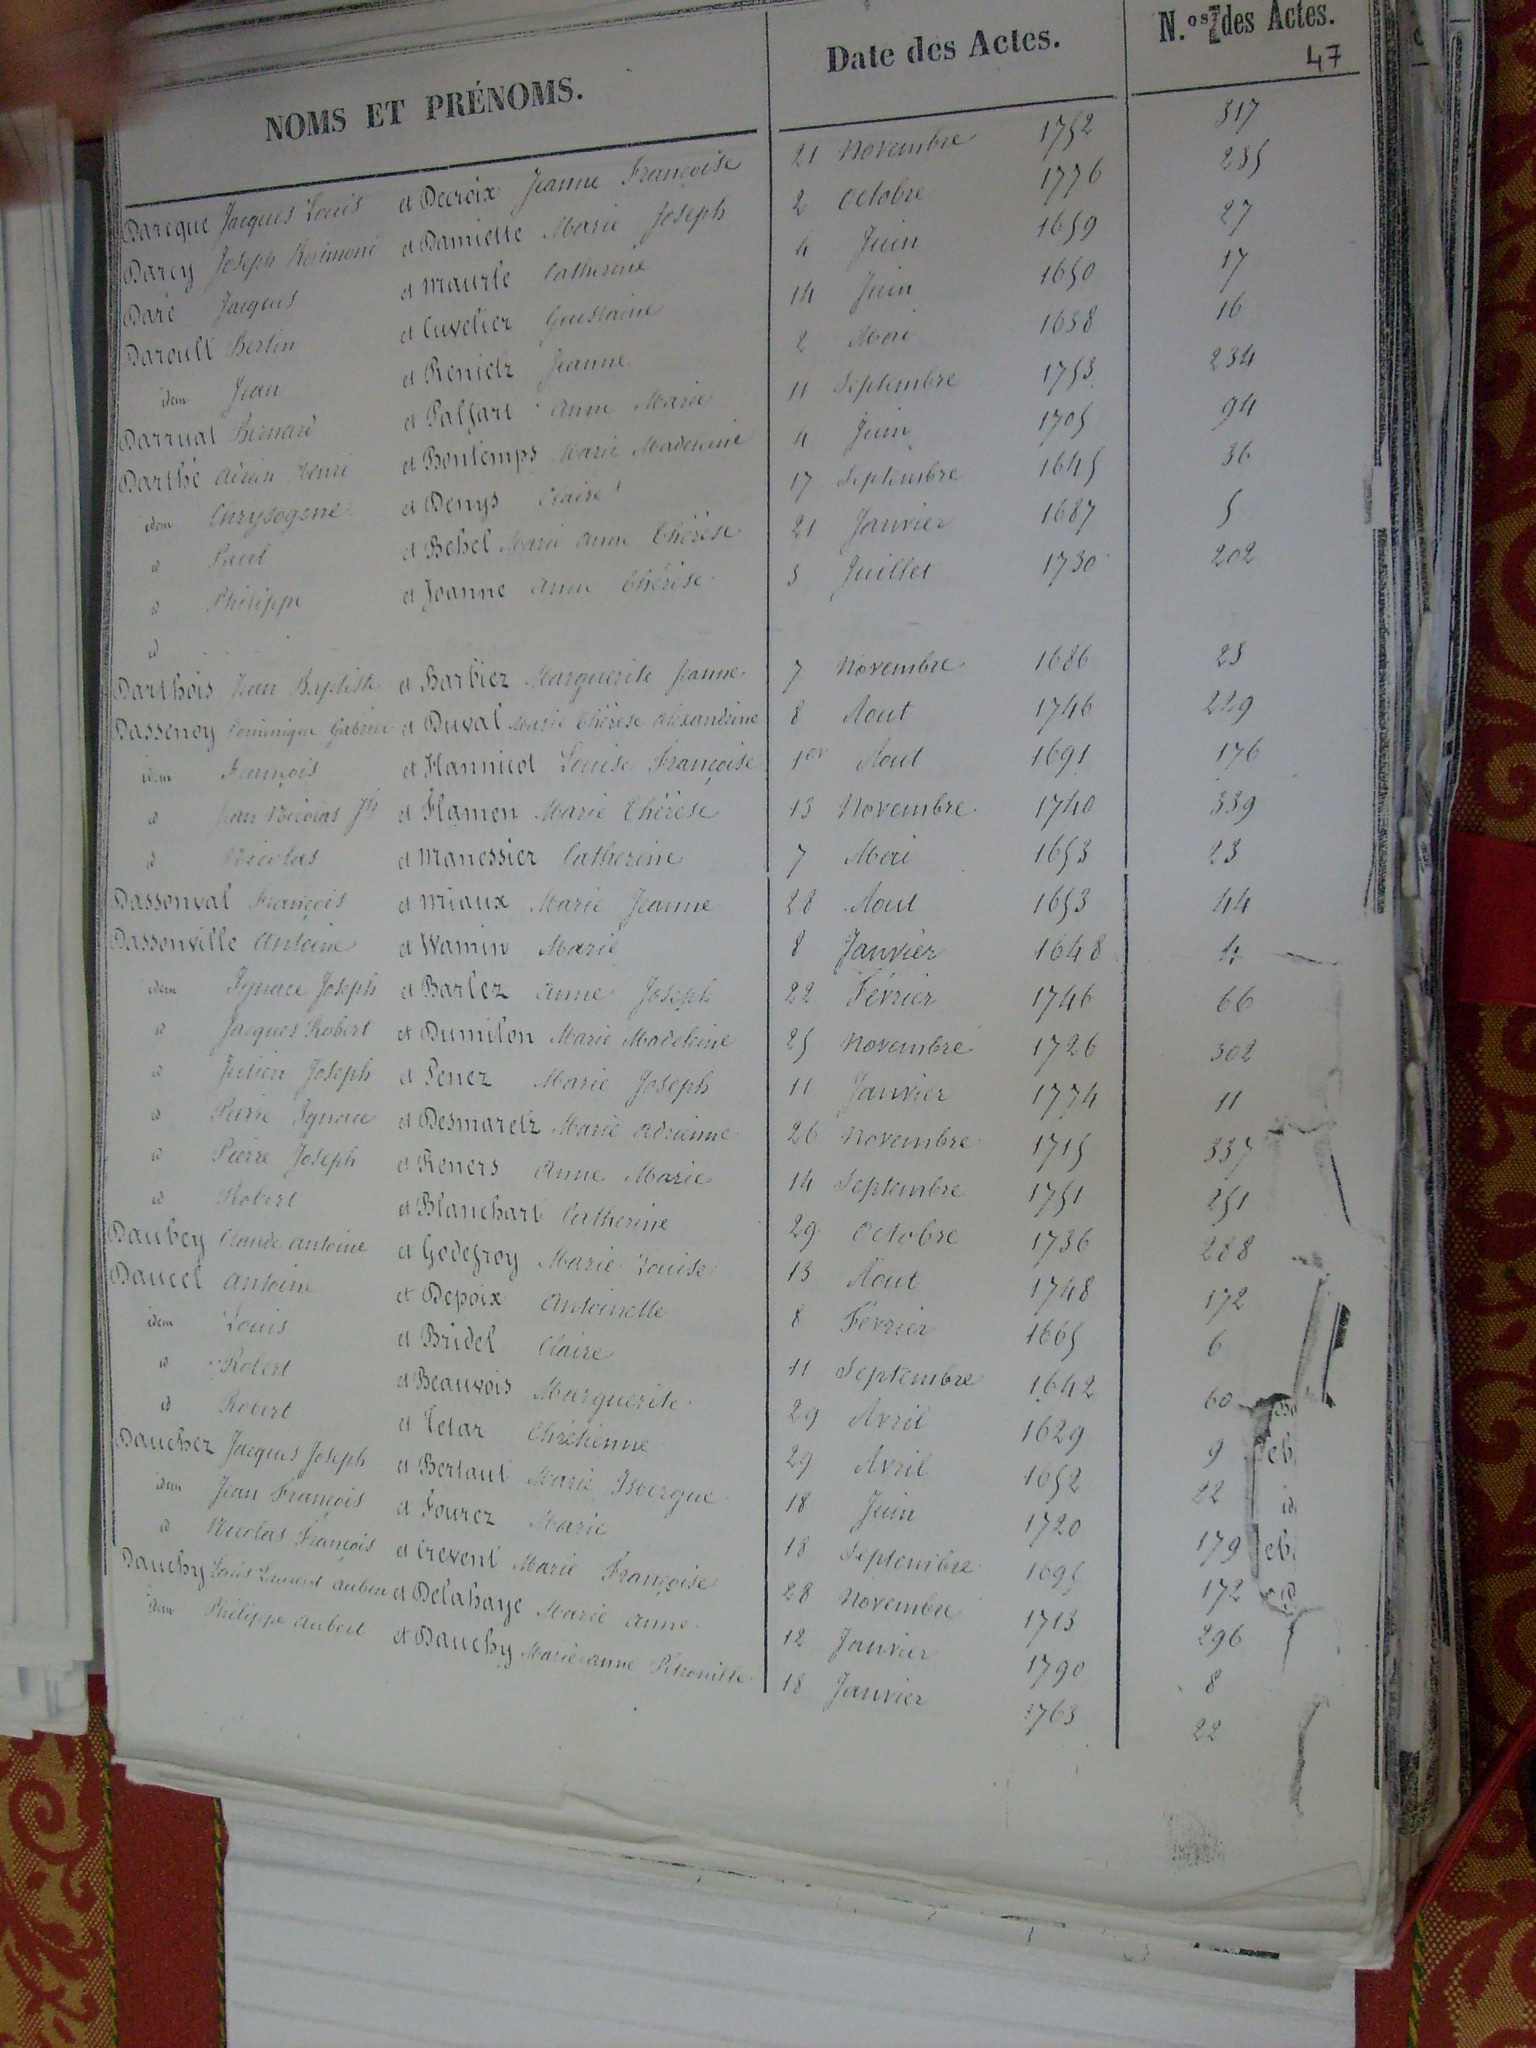 NOMS ET PRÉNOMS. Date des Actes. N.os des Actes.
47
Darcque Jacques Louis et Decroix Jeanne Françoise 21 Novembre 1752 317
Darcy Joseph Raimond et Damiette Marie Joseph 2 Octobre 1776 235
Daré Jacques et Maurle Catherine 4 Juin 1659 27
Daroult Bertin et Cuvelier Guislaine 14 Juin 1650 17
idem Jean et Renietz Jeanne 2 Mai 1638 16
Darrual Bernard et Palfart Anne Marie 11 Septembre 1753 234
Darthé Henri et Bontemps Marie Madeleine 4 Juin 1705 94
idem Chrysogone et Denys Claire 17 Septembre 1645 36
id Paul et Behel Marie Anne Thérèse 21 Janvier 1687 5
id Philippe et Jeanne Anne Thérèse 5 Juillet 1730 202
id
Darthois Jean Baptiste et Barbiez Marguerite Jeanne 7 Novembre 1686 23
Dassenoy Dominique et Duval Marie Thérèse Alexandrine 8 Aout 1746 229
idem François et Hannicot Louise Françoise 1er Aout 1691 176
id Jean Nicolas Jh et Flamen Marie Thérèse 13 Novembre 1740 339
id Nicolas et Manessier Catherine 7 Mai 1653 23
Dassonval François et Miaux Marie Jeanne 28 Aout 1653 44
Dassonville Antoine et Wamin Marie 8 Janvier 1648 4
idem Ignace Joseph et Barlez Anne Joseph 22 Février 1746 66
id Jacques Robert et Dumilon Marie Madeleine 25 Novembre 1726 302
id Julien Joseph et Penez Marie Joseph 11 Janvier 1774 11
id Pierre Ignace et Desmaretz Marie Adrienne 26 Novembre 1715 337
id Pierre Joseph et Reners Anne Marie 14 Septembre 1751 251
id Robert et Blanchart Catherine 29 Octobre 1736 288
Daubey Claude Antoine et Godefroy Marie Louise 13 Aout 1748 172
Daucel Antoine et Depoix Antoinette 8 Février 1665 6
idem Louis et Bridel Claire 11 Septembre 1642 60
id Robert et Beauvois Marguerite 29 Avril 1629 9
id Robert et Tetar Chrétienne 29 Avril 1652 22
Dauchez Jacques Joseph et Bertaut Marie Isbergue 18 Juin 1720 179
idem Jean François et Fourez Marie 18 Septembre 1695 172
id Nicolas François et Crevent Marie Françoise 28 Novembre 1713 296
Dauchy Louis Laurent Aubin et Delahaye Marie Anne 12 Janvier 1790 8
idem Philippe Aubert et Dauchy Marie Anne Pétronille 18 Janvier 1763 22